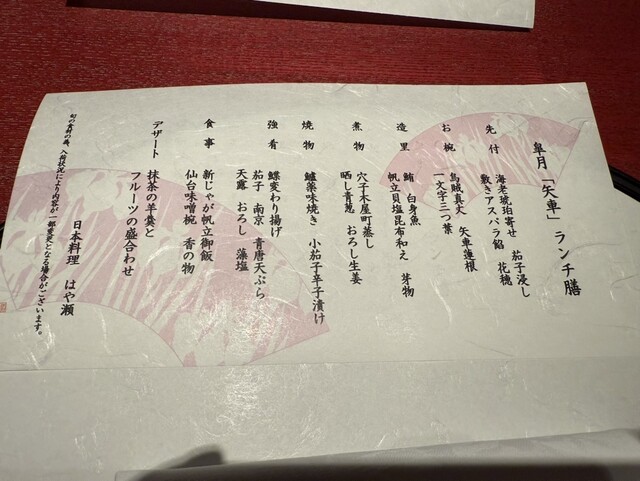 皐月「矢車」ランチ膳
先付 海老琥珀寄せ 茄子浸し
敷きアスパラ餡 花穂
お椀 烏賊真丈 矢車蓮根
一文字三つ葉
造里 鮪 白身魚
帆立貝塩昆布和え 芽物
煮物 穴子木屋町蒸し
晒し青葱 おろし生姜
焼物 鱸薬味焼き 小茄子辛子漬け
強肴 鰈変わり揚げ
茄子 南京 青唐天ぷら
天露 おろし 藻塩
食事 新じゃが帆立御飯
仙台味噌椀 香の物
デザート 抹茶の羊羹と
フルーツの盛合わせ
日本料理 はや瀬
旬の食材の為、入荷状況により内容が一部変更となる場合がございます。